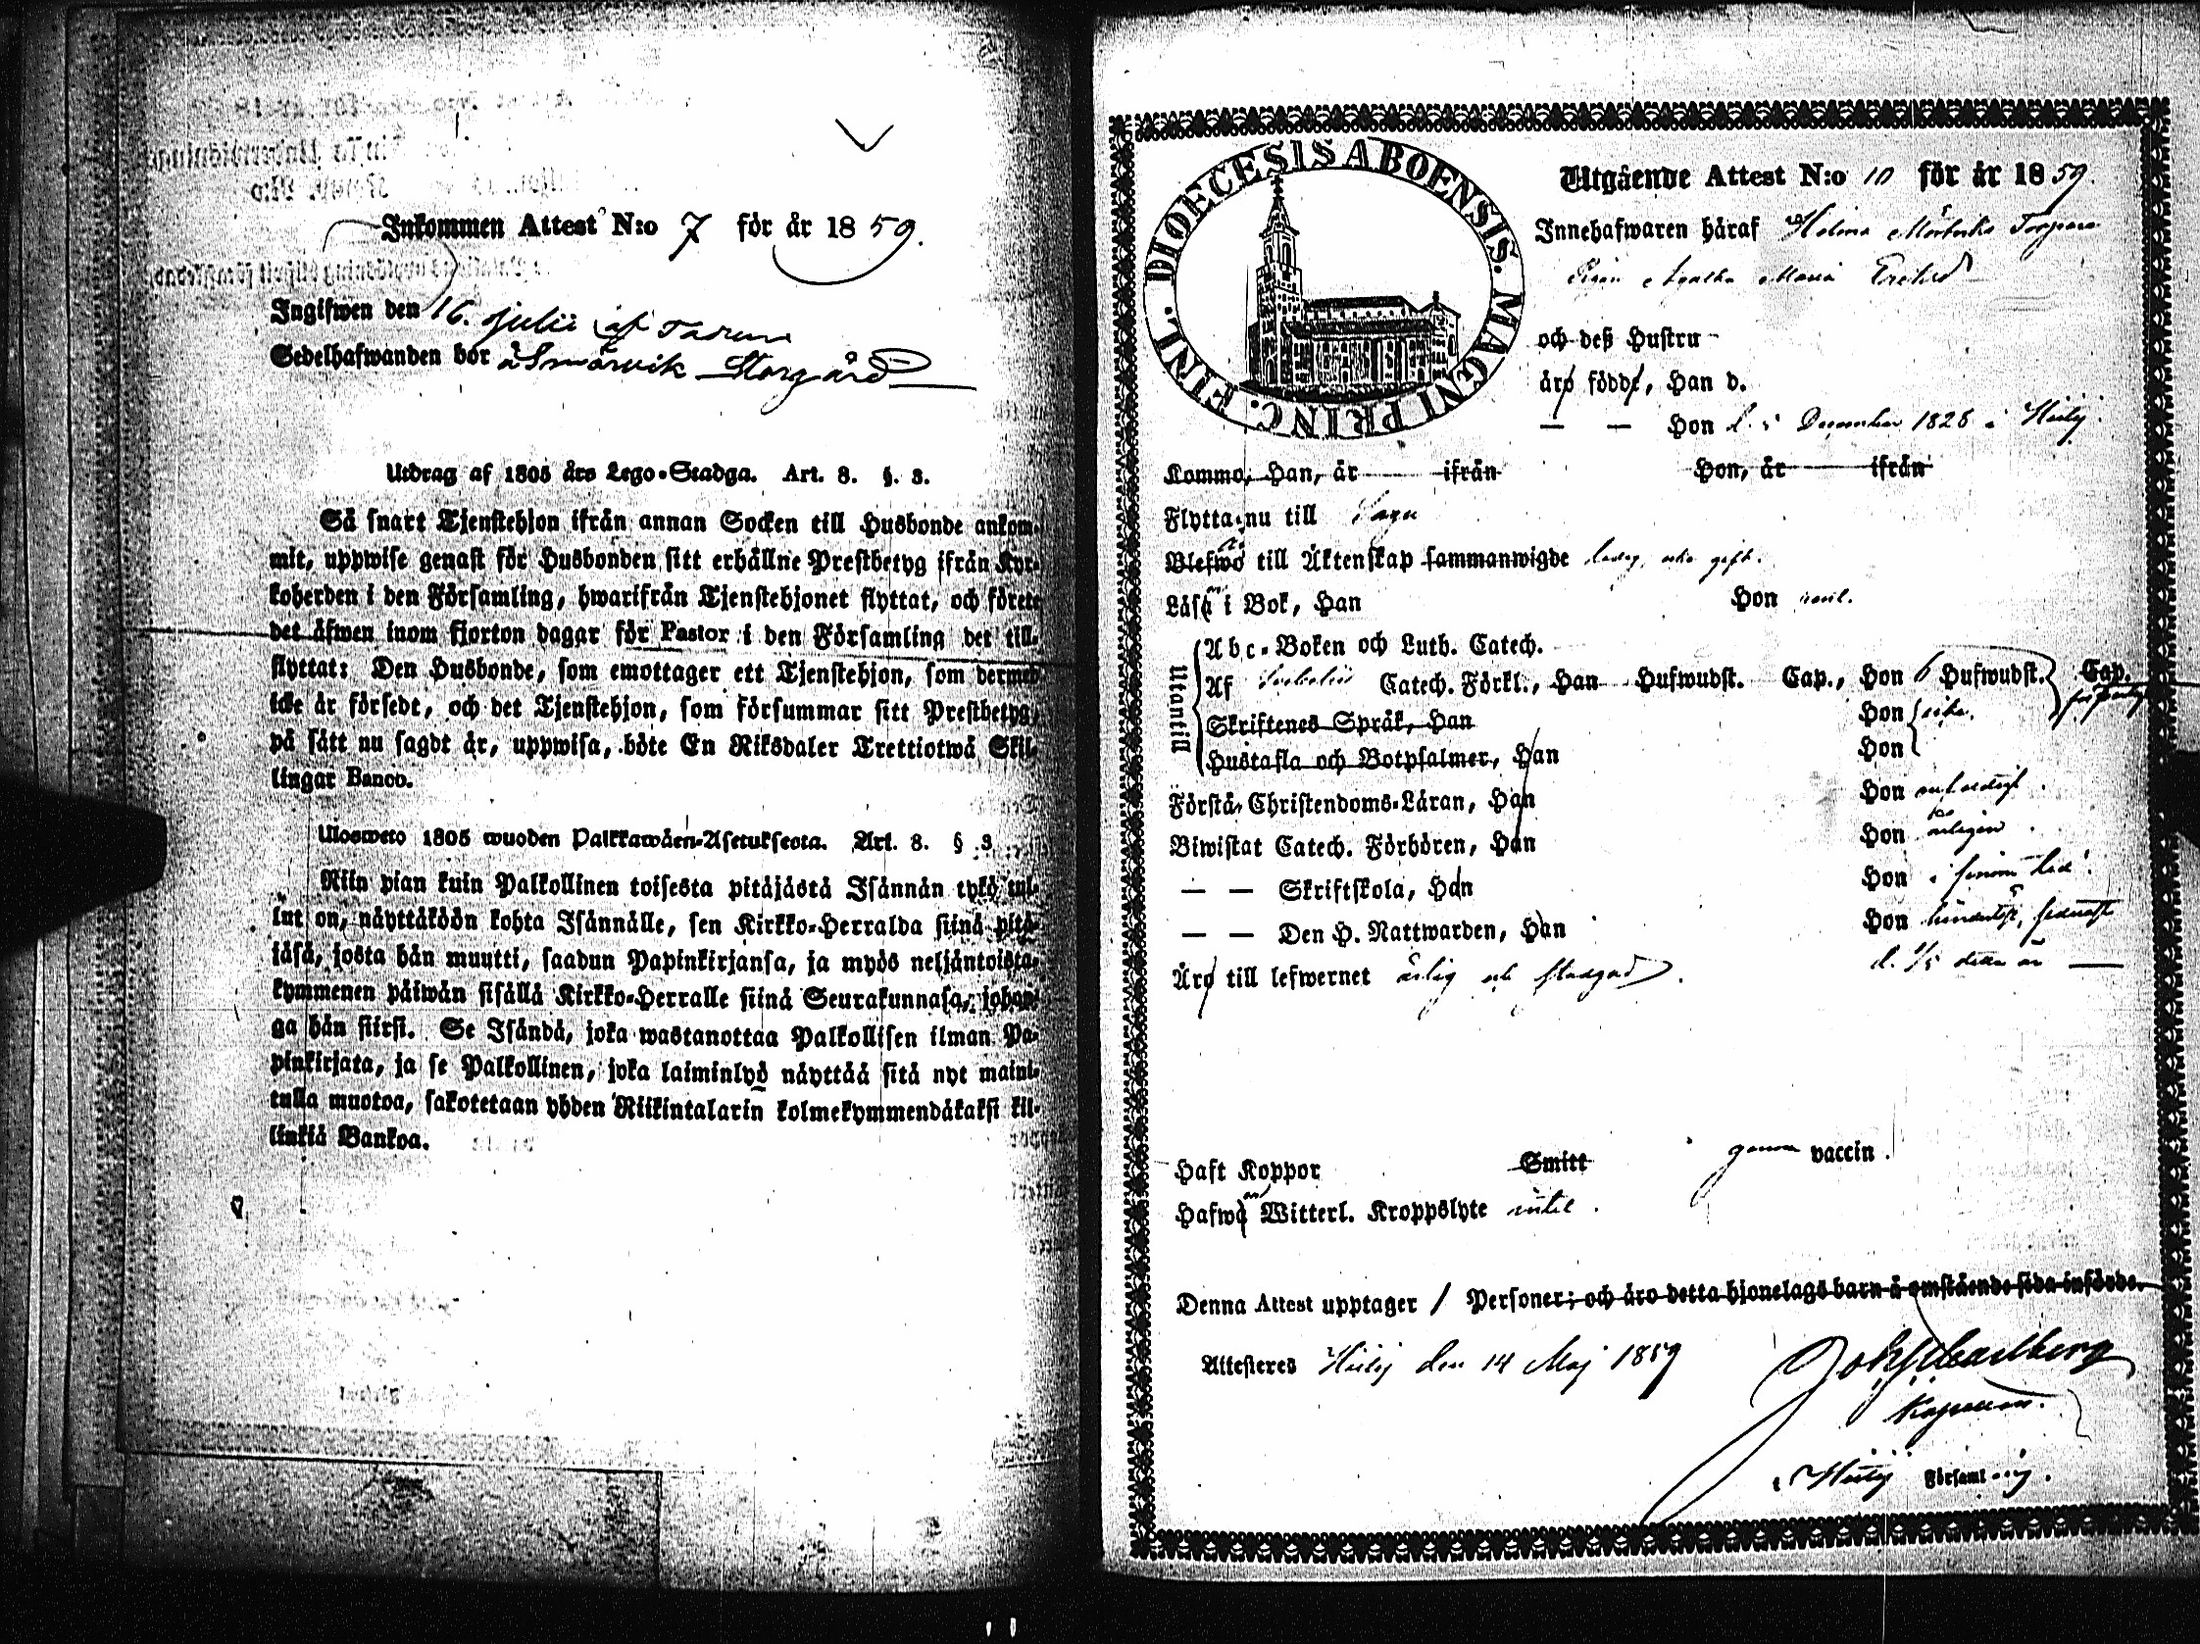 Inkommen Attest N:o 7 för år 1859.
Ingifwen den 16. Julii af
Sedelhafwanden bor å Smörvik Storgård
Utdrag af 1805 års Lego-Stadga. Art. 8. §. 3.
Så snart Tjenstehjon ifrån annan Socken till Husbonde ankom-
mit, uppwise genast för Husbonden sitt erhållne Prestbetyg ifrån Kyr-
koherden i den Församling, hwarifrån Tjenstehjonet flyttat, och förete
det äfwen inom fjorton dagar för Pastor i den Församling det till-
flyttat: Den Husbonde, som emottager ett Tjenstehjon, som dermed
icke är försedt, och det Tjenstehjon, som försummar sitt Prestbetyg,
på sätt nu sagdt är, uppwisa, böte En Riksdaler Trettiotwå Skil-
lingar Banco.
Ulosweto 1805 wuoden Palkkawäen-Asetuksesta. Art. 8. § 3
Niin pian kuin Palkollinen toisesta pitäjästä Isännän tykö tul-
lut on, näyttäköön kohta Isännälle, sen Kirkko-Herralda siinä pitä-
jäsä, josta hän muutti, saadun Papinkirjansa, ja myös neljäntoista-
kymmenen päiwän sisällä Kirkko-Herralle siinä Seurakunnasa, johon-
ga hän siirsi. Se Isändä, joka wastanottaa Palkollisen ilman Pa-
pinkirjata, ja se Palkollinen, joka laiminlyö näyttää sitä nyt maini-
tulla muotoa, sakotetaan yhden Riikintalarin kolmekymmendäkaksi kil-
linkiä Bankoa.
DIOECESIS ABOENSIS. MAGNI PRINC. FINL.
Utgående Attest N:o 10 för år 1859.
Innehafwaren häraf Helina
Agatha Maria
och deß Hustru
äro födde, Han d.
— — Hon d. 5 December 1828 i
Komma, Han, år ifrån Hon, år ifrån
Flytta nu till Sagu
Blefwo till Äktenskap sammanwigde ledig, icke gift.
Läsa i Bok, Han Hon
Utantill
Abc-Boken och Luth. Catech.
Af Catech. Förkl., Han Hufwudst. Cap., Hon 6 Hufwudst. Cap.
Skriftenes Språk, Han Hon
Hustafla och Botpsalmer, Han Hon
Förstå Christendoms-Läran, Han Hon
Biwistat Catech. Förhören, Han Hon
— — Skriftskola, Han Hon i sinom tid.
— — Den H. Nattwarden, Han Hon
d. 1/5 detta år
Äro till lefwernet ärlig och stadgad.
Haft Koppor Smitt genom vaccin.
Hafwa Witterl. Kroppslyte intet.
Denna Attest upptager 1 Personer; och äro detta hjonelags barn å omstående sida införde.
Attesteres den 14 Maj 1859
Kapellan.
i Församling.